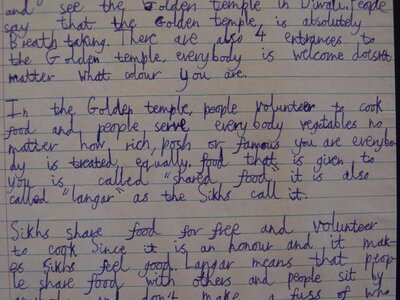 and see the Golden temple in Diwali. People
say that the Golden temple, is absolutely
Breath taking. There are also 4 entrances to
the Golden temple, everybody is welcome doesnt
matter what colour you are.
In the Golden temple, people volunteer to cook
food and people serve everybody vegetables no
matter how rich, posh or famous you are everybo-
dy is treated equally. food that is given to
you is called "shared food" it is also
called "langar" as the Sikhs call it.
Sikhs share food for free and volunteer
to cook Since it is an honour and it mak-
es Sikhs feel good. Langar means that peop-
le share food with others and people sit by
don't make a fuss of who